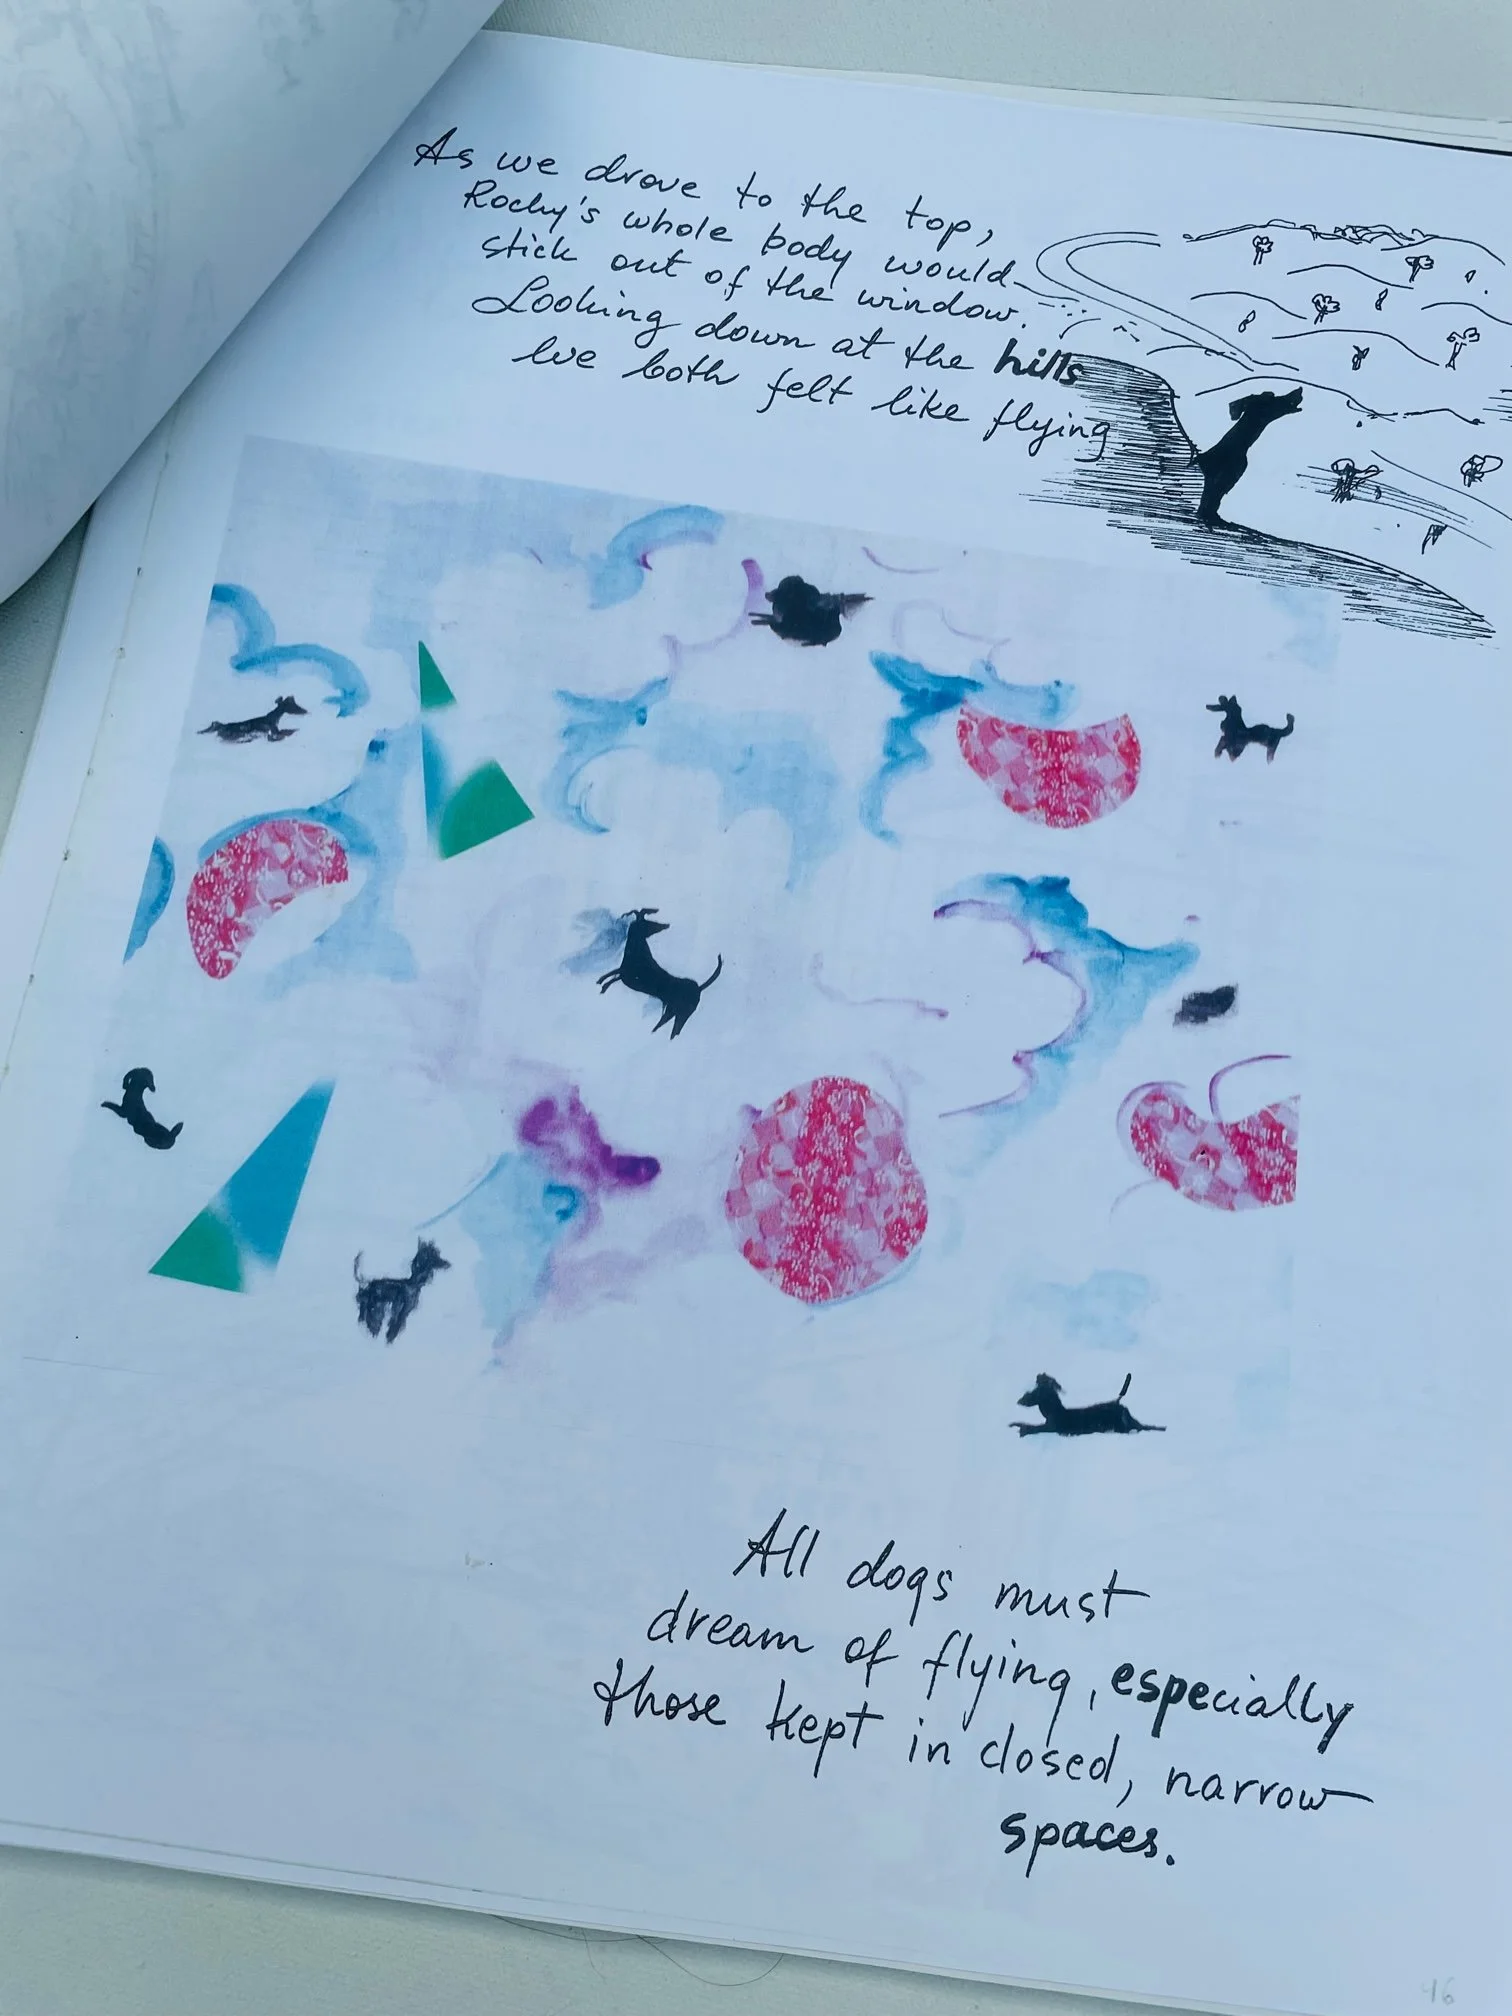 As we drove to the top,
Rocky's whole body would
stick out of the window.
Looking down at the hills
we both felt like flying
All dogs must
dream of flying, especially
those kept in closed, narrow
spaces.
46